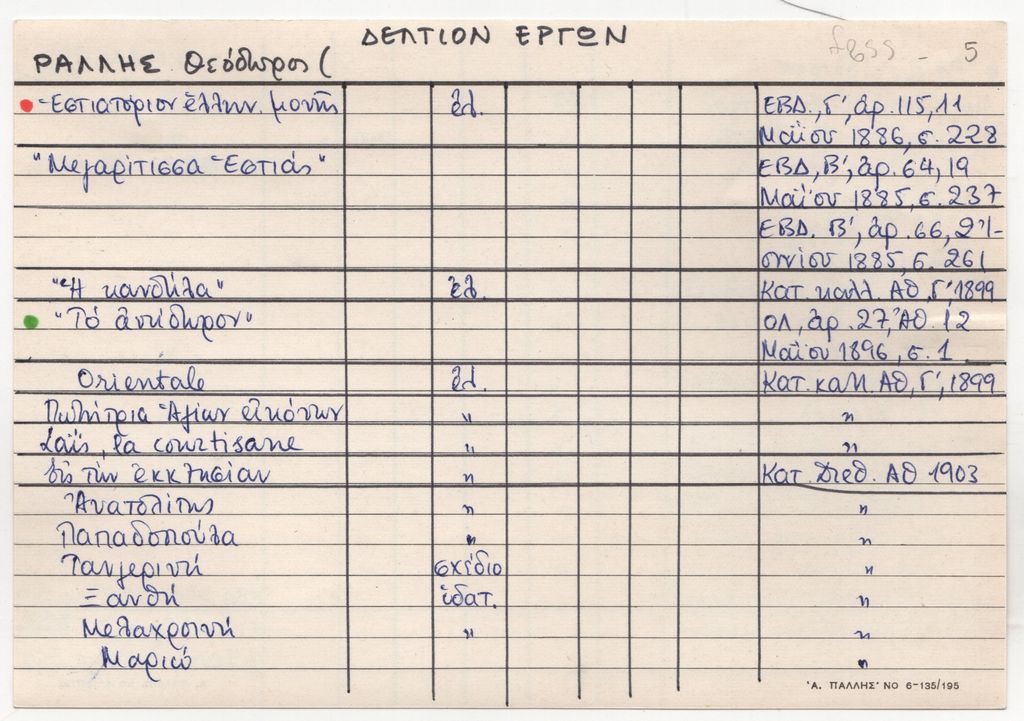 ΔΕΛΤΙΟΝ ΕΡΓΩΝ
5
ΡΑΛΛΗΣ Θεόδωρος (
Ἑστιατόριον ἑλλην. μονῆς ἐλ. ΕΒΔ., Γ', ἀρ. 115, 11
Μαΐου 1886, σ. 228
"Μεγαρίτισσα Ἑστιάς" ΕΒΔ, Β', ἀρ. 64, 19
Μαΐου 1885, σ. 237
ΕΒΔ. Β', ἀρ. 66, 2 Ἰ-
ουνίου 1885, σ. 261
"Ἡ κανδήλα" ἐλ. Κατ. καλλ. Ἀθ, Γ' 1899
"Τό ἀντίδωρον" ΟΛ, ἀρ. 27, Ἀθ. 12
Μαΐου 1896, σ. 1
Orientale ἐλ. Κατ. καλλ. Ἀθ, Γ', 1899
Πωλήτρια Ἁγίων εἰκόνων " "
Laïs, la courtisane " "
Εἰς τήν ἐκκλησίαν " Κατ. Διεθ. Ἀθ 1903
Ἀνατολίτης " "
Παπαδοπούλα " "
Τανγερινή σχέδιο "
Ξανθή ὑδατ. "
Μελαχροινή " "
Μαριώ "
'Α. ΠΑΛΛΗΣ' ΝΟ 6-135/195